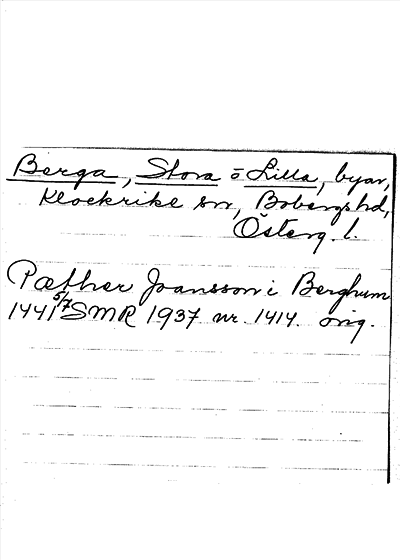 Berga, Stora o Lilla, byar,
Klockrike sn, Bobergs hd,
Österg. l.
Pæther Joansson i Berghum
1441 5/7 SMR 1937 nr. 1414. orig.